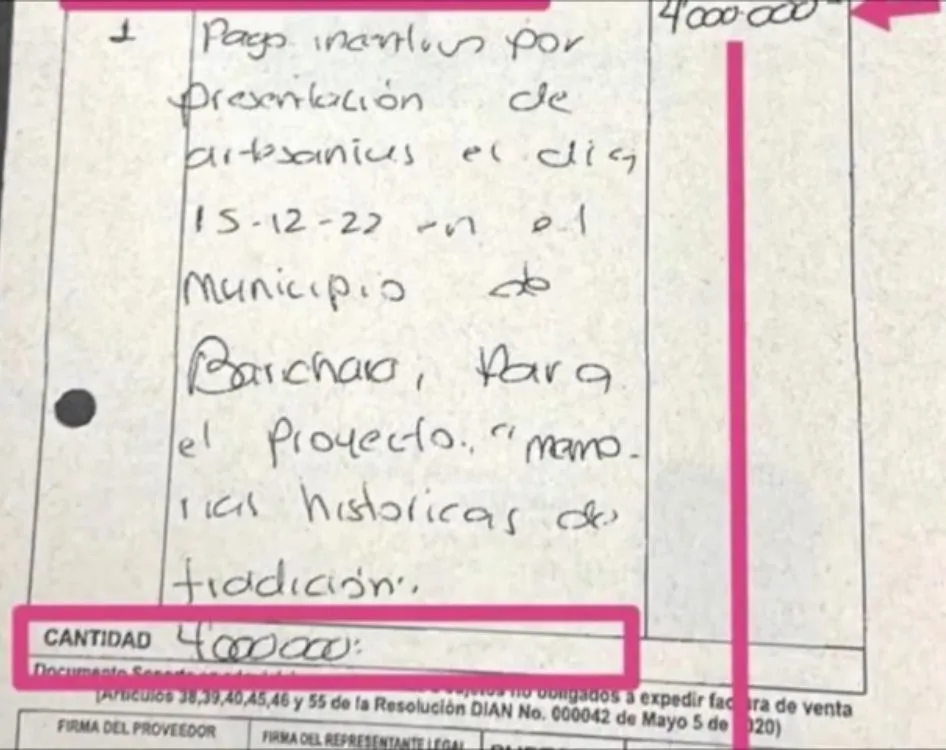 4'000.000
1 Pago incentivos por
presentación de
artesanias el dia
15-12-22 en el
Municipio de
Barichara, Para
el Proyecto. "memo-
rias historicas de
tradición.
CANTIDAD 4'000000:
Documento Soporte en no obligados a expedir factura de venta
(Artículos 38,39,40,45,46 y 55 de la Resolución DIAN No. 000042 de Mayo 5 de 2020)
FIRMA DEL PROVEEDOR FIRMA DEL REPRESENTANTE LEGAL